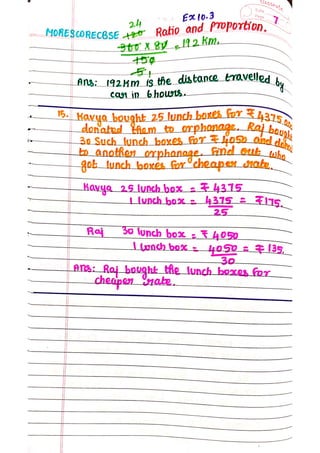 Ex 10.3
7
MORESCORECBSE Ratio and Proportion.
24
120
360 x 80 = 192 Km.
150
5
Ans: 192 Km is the distance travelled by
car in 6 hours.
15. Kavya bought 25 lunch boxes for ₹ 4375
donated them to orphanage. Raj bought
30 Such lunch boxes for ₹ 4050 and
to another orphanage. Find out who
got lunch boxes for cheaper rate.
Kavya 25 lunch box = ₹ 4375
1 lunch box = 4375 = ₹ 175.
25
Raj 30 lunch box = ₹ 4050
1 lunch box = 4050 = ₹ 135.
30
Ans: Raj bought the lunch boxes for
cheaper rate.